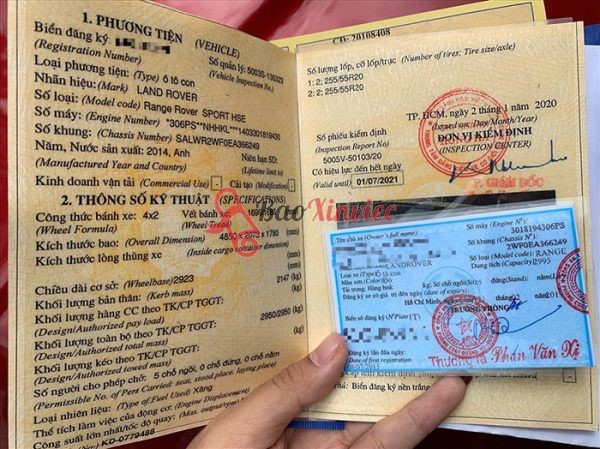 1. PHƯƠNG TIỆN
(VEHICLE)
Biển đăng ký:
(Registration Number)
Số quản lý: 5003S-136323
(Vehicle Inspection No.)
Loại phương tiện: (Type) ô tô con
Nhãn hiệu: (Mark) LAND ROVER
Số loại: (Model code) Range Rover SPORT HSE
Số máy: (Engine Number) *306PS**NHHKL***1403301819430
Số khung: (Chassis Number) SALWR2WF0EA366249
Năm, Nước sản xuất: 2014, Anh
(Manufactured Year and Country)
Niên hạn SD:
(Lifetime limit to)
Kinh doanh vận tải (Commercial Use)
Cải tạo (Modification)
2. THÔNG SỐ KỸ THUẬT (SPECIFICATIONS)
Công thức bánh xe: 4x2
(Wheel Formula)
Vết bánh xe:
(Wheel Tread)
Kích thước bao: (Overall Dimension) 4850 x 2073 x 1780 (mm)
Kích thước lòng thùng xe
(Inside cargo container dimension)
Chiều dài cơ sở: (Wheelbase) 2923
Khối lượng bản thân: (Kerb mass) 2147 (kg)
Khối lượng hàng CC theo TK/CP TGGT:
(Design/Authorized pay load)
Khối lượng toàn bộ theo TK/CP TGGT: 2950/2950 (kg)
(Design/Authorized total mass)
Khối lượng kéo theo TK/CP TGGT:
(Design/Authorized towed mass)
Số người cho phép chở: 5 chỗ ngồi, 0 chỗ đứng, 0 chỗ nằm
(Permissible No. of Pers Carried: seat, stood place, laying place)
Loại nhiên liệu: (Type of Fuel Used) Xăng
Thể tích làm việc của động cơ: (Engine Displacement)
Công suất lớn nhất/tốc độ quay:
KD-0779488
CD: 20108408
Số lượng lốp, cỡ lốp/trục (Number of tires; Tire size/axle)
1: 2; 255/55R20
2: 2; 255/55R20
TP. HCM, ngày 2 tháng 1 năm 2020
(Issued on: Day/Month/Year)
Số phiếu kiểm định
(Inspection Report No)
5005V-50103/20
ĐƠN VỊ KIỂM ĐỊNH
(INSPECTION CENTER)
Có hiệu lực đến hết ngày
(Valid until) 01/07/2021
P. GIÁM ĐỐC
BaoXinviec
Tên chủ xe (Owner's full name):
Số máy (Engine N°):
3018194306PS
Số khung (Chassis N°):
2WF0EA366249
LANDROVER
Số loại (Model code): RANGE
Loại xe (Type): ô tô con
Dung tích (Capacity): 2995
Màu sơn (Color):
Số chỗ ngồi (Sit): 5
đứng (Stand):
Tải trọng: Hàng hoá:
Đăng ký xe có giá trị đến ngày (date of expiry)
Hồ Chí Minh,
TRƯỞNG PHÒNG
Biển số đăng ký (N° Plate)
Đăng ký lần đầu ngày:
Date of first registration
Thượng tá Phan Văn Xê
Biển đăng ký nền trắng